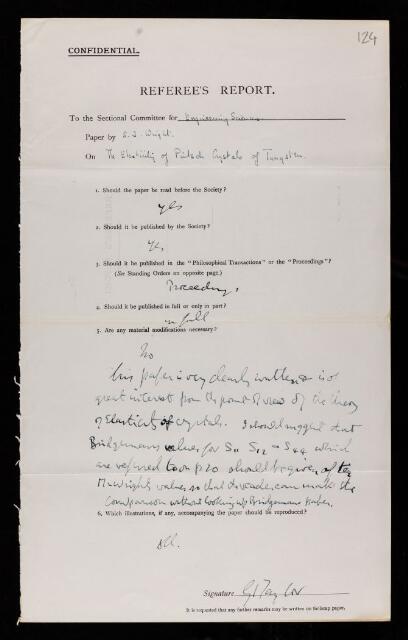 124
CONFIDENTIAL.
REFEREE'S REPORT.
To the Sectional Committee for Engineering Sciences
Paper by S. J. Wright.
On The Elasticity of Pintsch Crystals of Tungsten.
1. Should the paper be read before the Society?
yes
2. Should it be published by the Society?
Yes
3. Should it be published in the "Philosophical Transactions" or the "Proceedings"?
(See Standing Orders on opposite page.)
Proceedings
4. Should it be published in full or only in part?
in full
5. Are any material modifications necessary?
No
This paper is very clearly written & is of
great interest from the point of view of the theory
of Elasticity of crystals. I should suggest that
Bridgeman's values for S11 S12 & S44 which
are referred to on p 20 should be given after
Mr Wright's values so that the reader can make the
comparison without looking up Bridgemans paper.
6. Which illustrations, if any, accompanying the paper should be reproduced?
all.
Signature G I Taylor
It is requested that any further remarks may be written on foolscap paper.